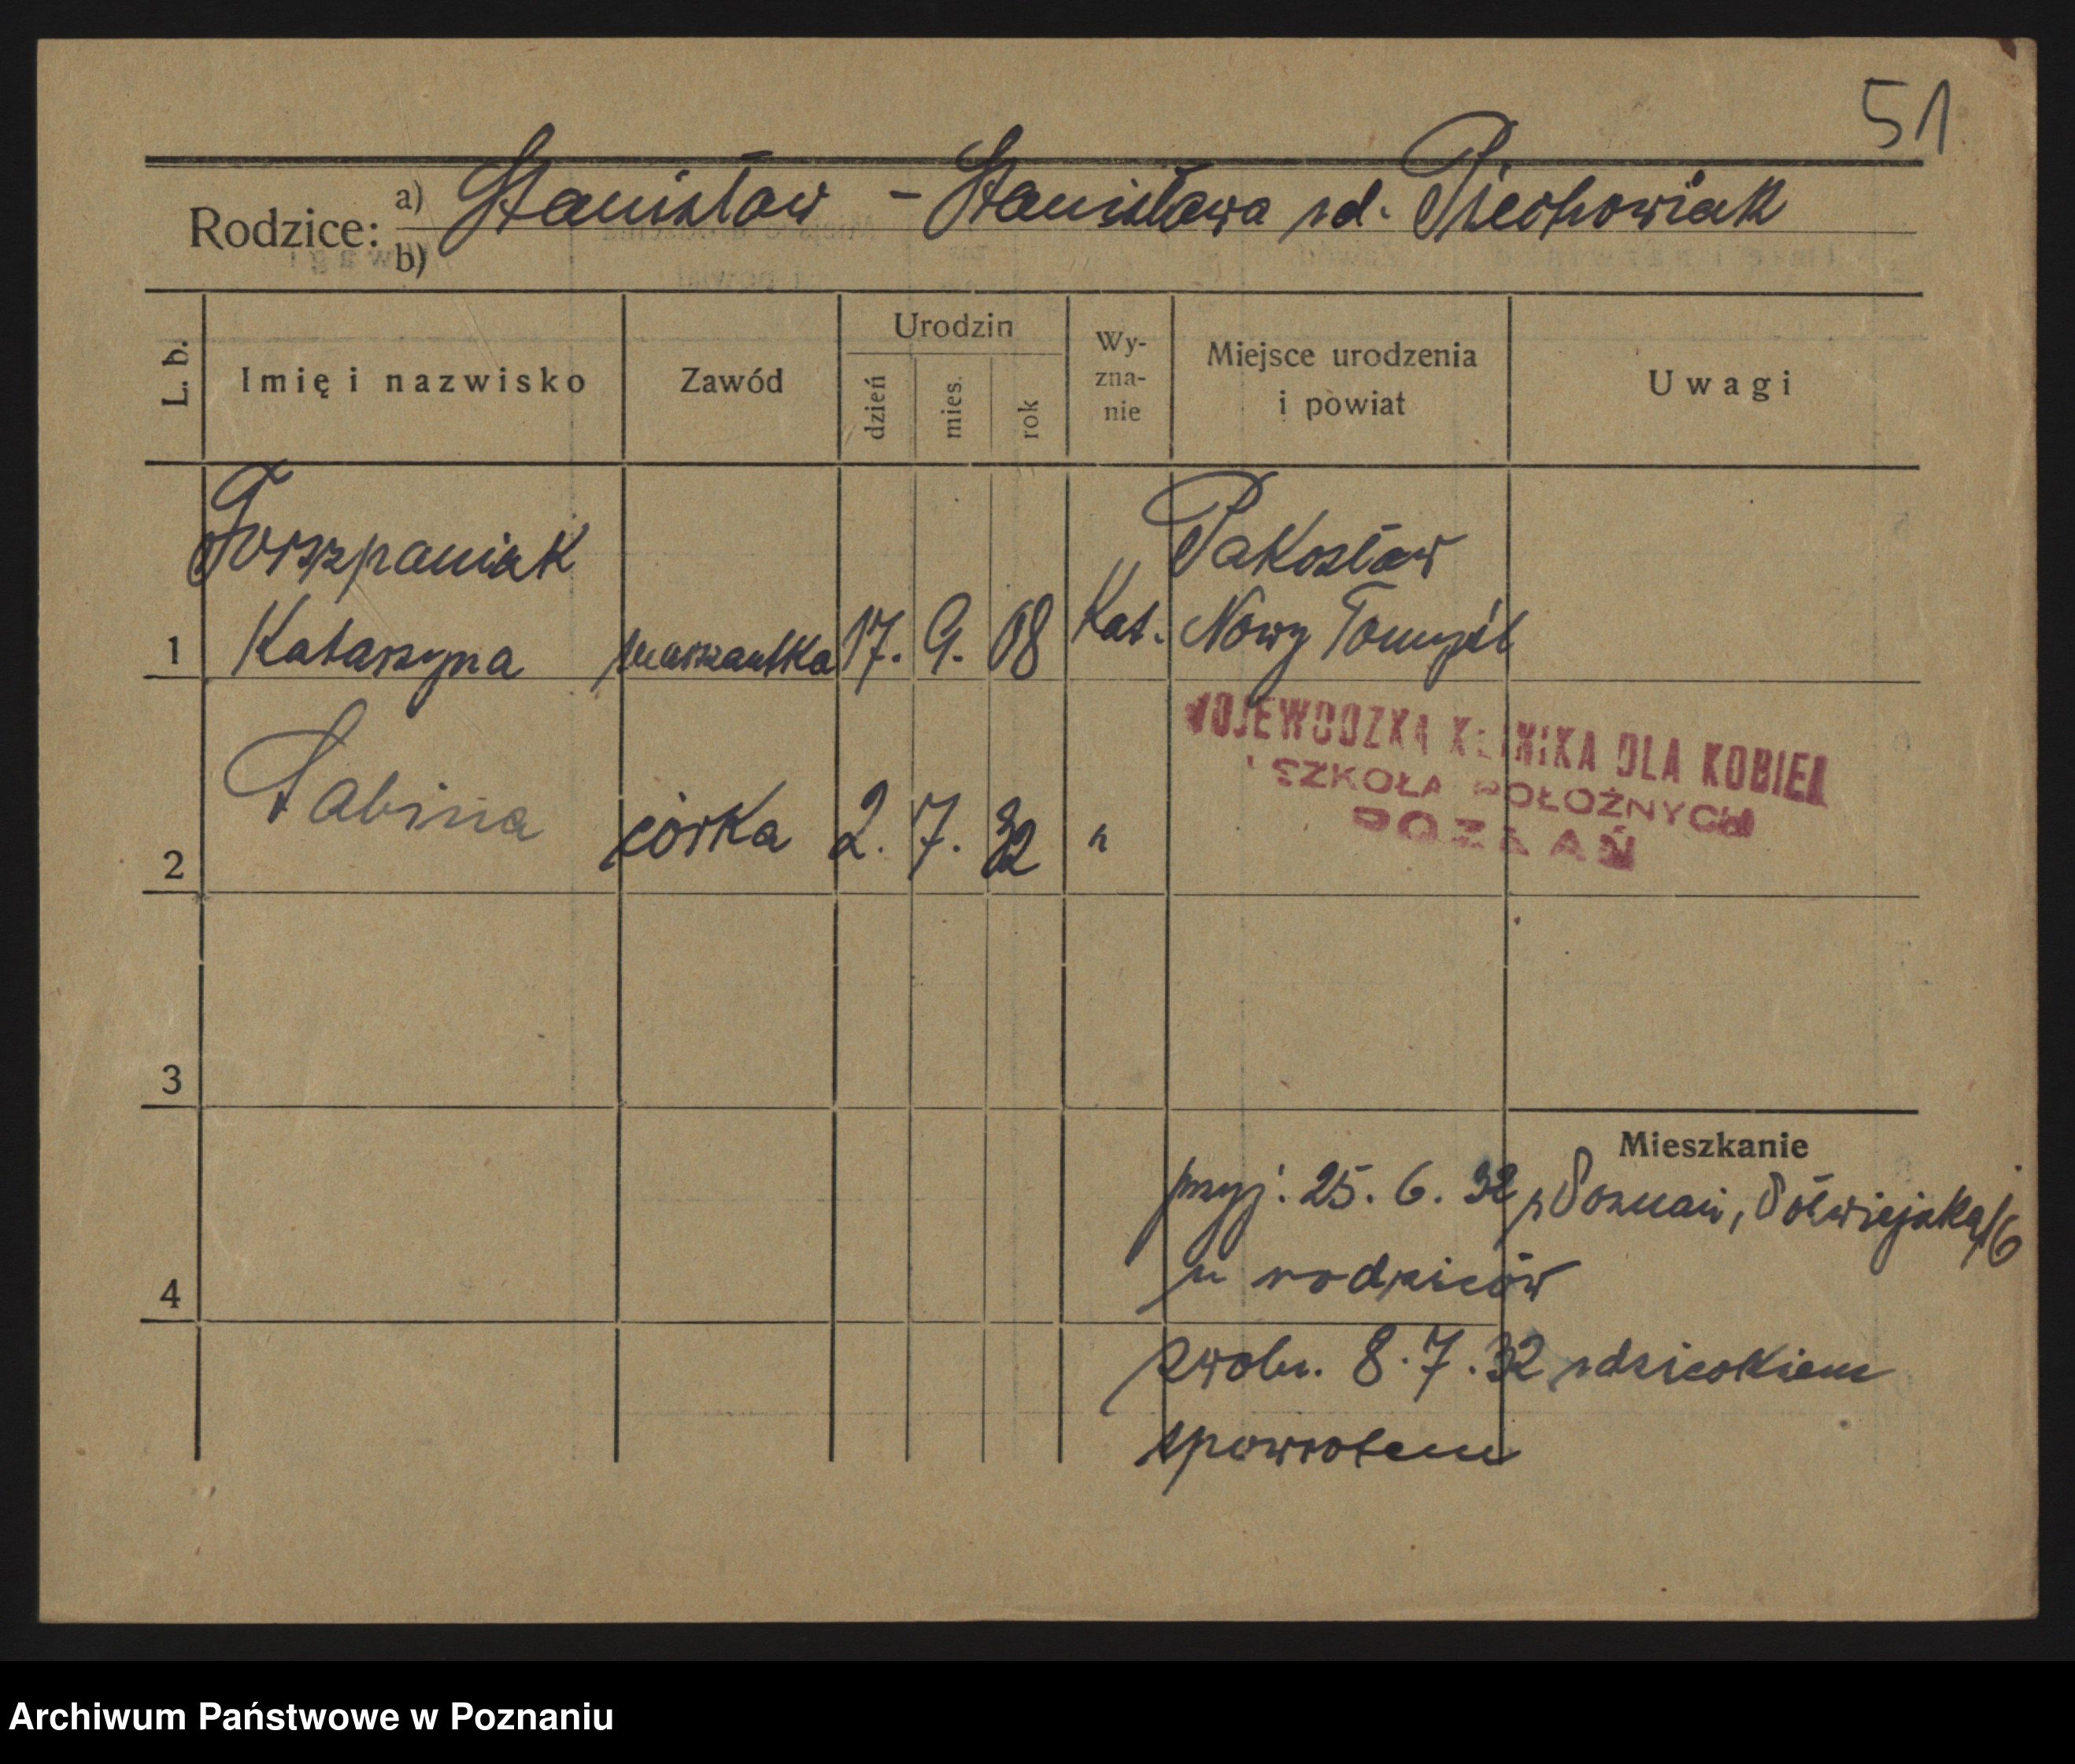 51
Rodzice: a) Stanisław – Stanisława zd. Piechowiak
b)
L. b.
Imię i nazwisko
Zawód
Urodzin
dzień
mies.
rok
Wy-
zna-
nie
Miejsce urodzenia
i powiat
Uwagi
Forszpaniak
Pakosław
1 Katarzyna 17. 9. 08 Kat. Nowy Tomyśl
WOJEWÓDZKA KLINIKA DLA KOBIET
I SZKOŁA POŁOŻNYCH
POZNAŃ
2 Sabina córka 2. 7. 32 "
3
Mieszkanie
przyj. 25. 6. 32 z Poznań, Półwiejska 16
4
u rodziców
zwoln. 8. 7. 32 z dzieckiem
spowrotem
Archiwum Państwowe w Poznaniu